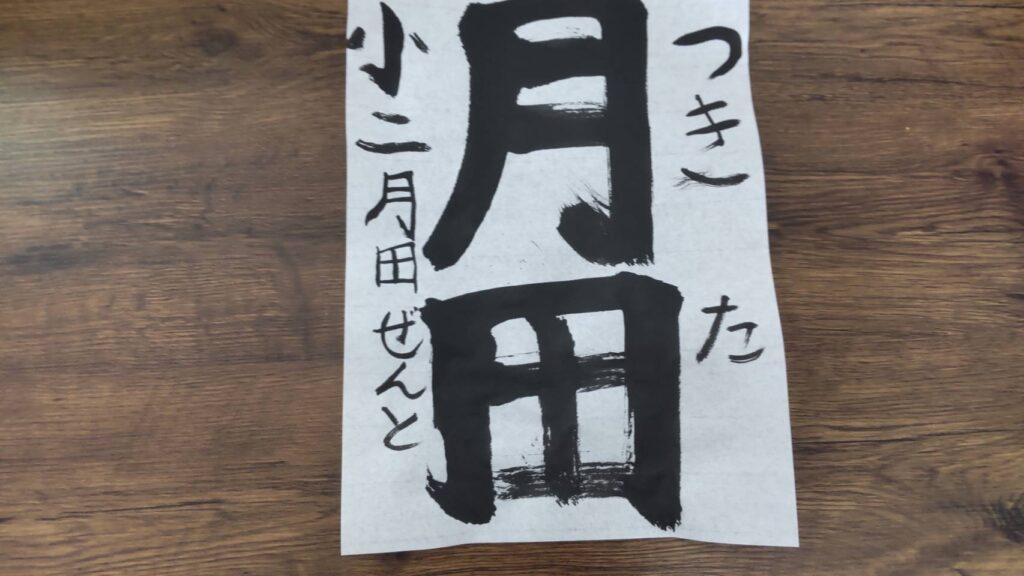 つきた
月田
小二月田ぜんと